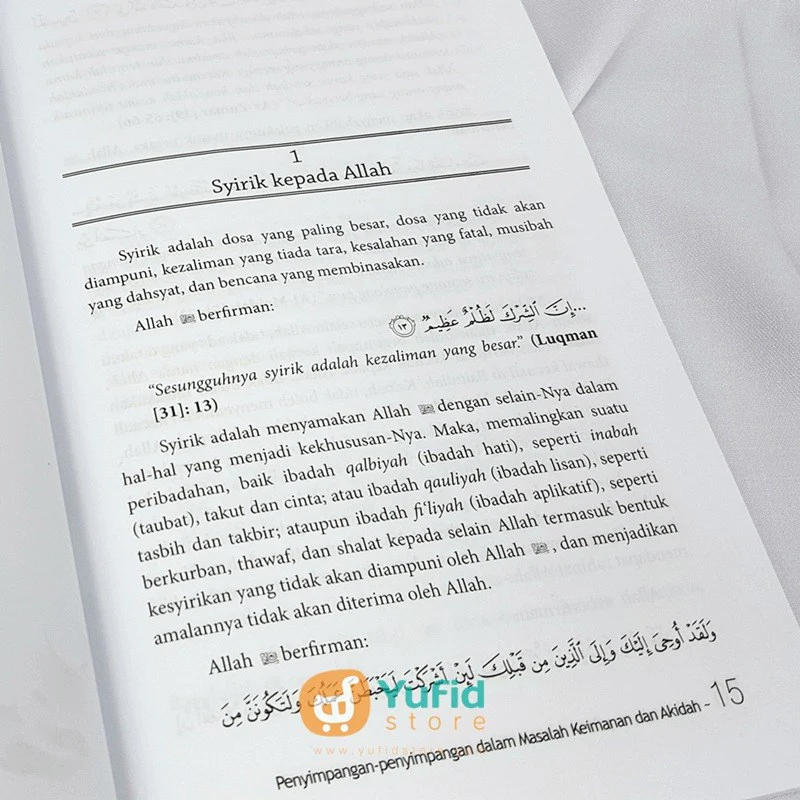 1
Syirik kepada Allah
Syirik adalah dosa yang paling besar, dosa yang tidak akan
diampuni, kezaliman yang tiada tara, kesalahan yang fatal, musibah
yang dahsyat, dan bencana yang membinasakan.
Allah ﷻ berfirman:
...إِنَّ ٱلشِّرْكَ لَظُلْمٌ عَظِيمٌ ١٣
“Sesungguhnya syirik adalah kezaliman yang besar.” (Luqman
[31]: 13)
Syirik adalah menyamakan Allah ﷻ dengan selain-Nya dalam
hal-hal yang menjadi kekhususan-Nya. Maka, memalingkan suatu
peribadahan, baik ibadah qalbiyah (ibadah hati), seperti inabah
(taubat), takut dan cinta; atau ibadah qauliyah (ibadah lisan), seperti
tasbih dan takbir; ataupun ibadah fi‘liyah (ibadah aplikatif), seperti
berkurban, thawaf, dan shalat kepada selain Allah termasuk bentuk
kesyirikan yang tidak akan diampuni oleh Allah ﷻ, dan menjadikan
amalannya tidak akan diterima oleh Allah.
Allah ﷻ berfirman:
وَلَقَدْ أُوحِىَ إِلَيْكَ وَإِلَى ٱلَّذِينَ مِن قَبْلِكَ لَئِنْ أَشْرَكْتَ لَيَحْبَطَنَّ عَمَلُكَ وَلَتَكُونَنَّ مِنَ
Yufid
store
www.yufidstore.com
Penyimpangan-penyimpangan dalam Masalah Keimanan dan Akidah – 15